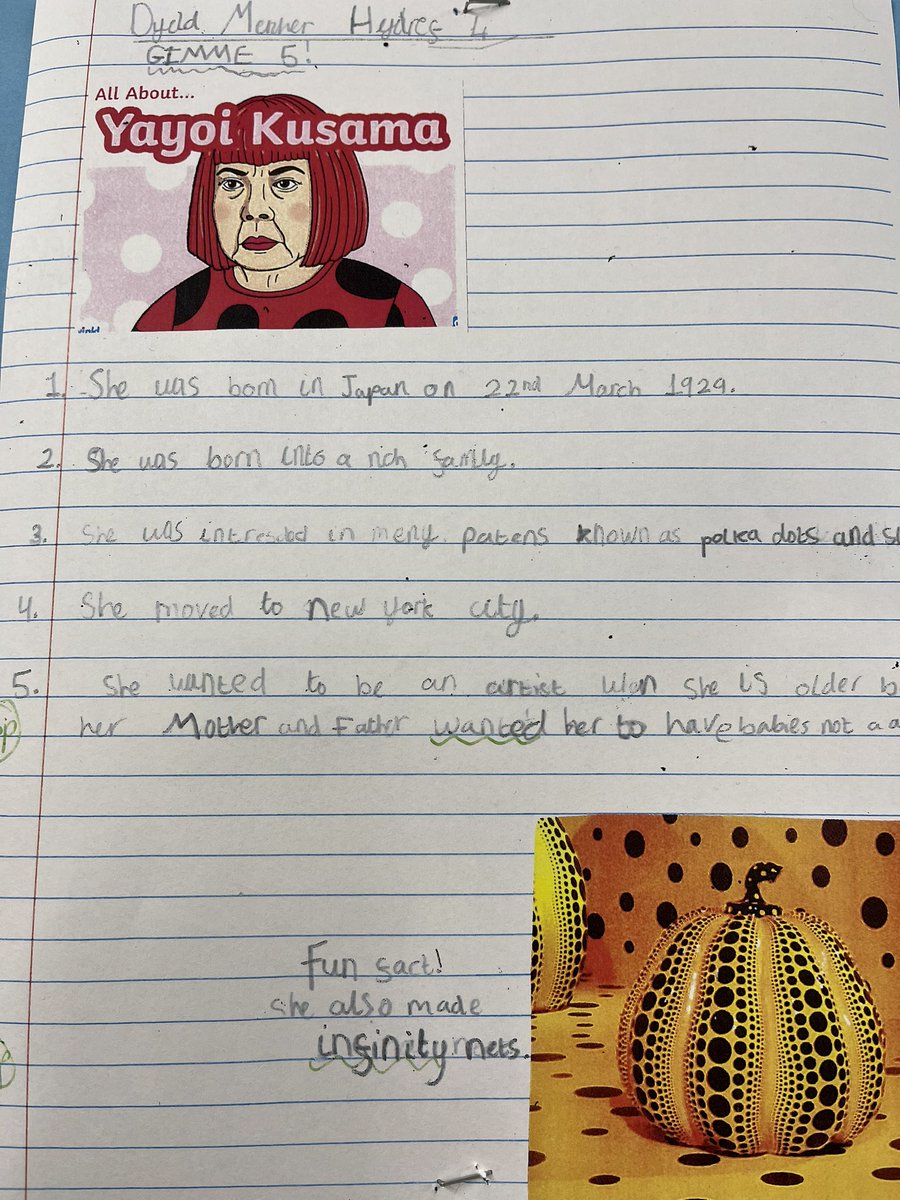 Dydd Mercher Hydref 1
GIMME 5!
All About...
Yayoi Kusama
1. She was born in Japan on 22nd March 1929.
2. She was born into a rich family.
3. She was intrested in meny patens known as polka dots and
4. She moved to new york city.
5. She wanted to be an artist wen she is older
her Mother and Father wanted her to have babies not a
Fun fact!
she also made
infinity nets.